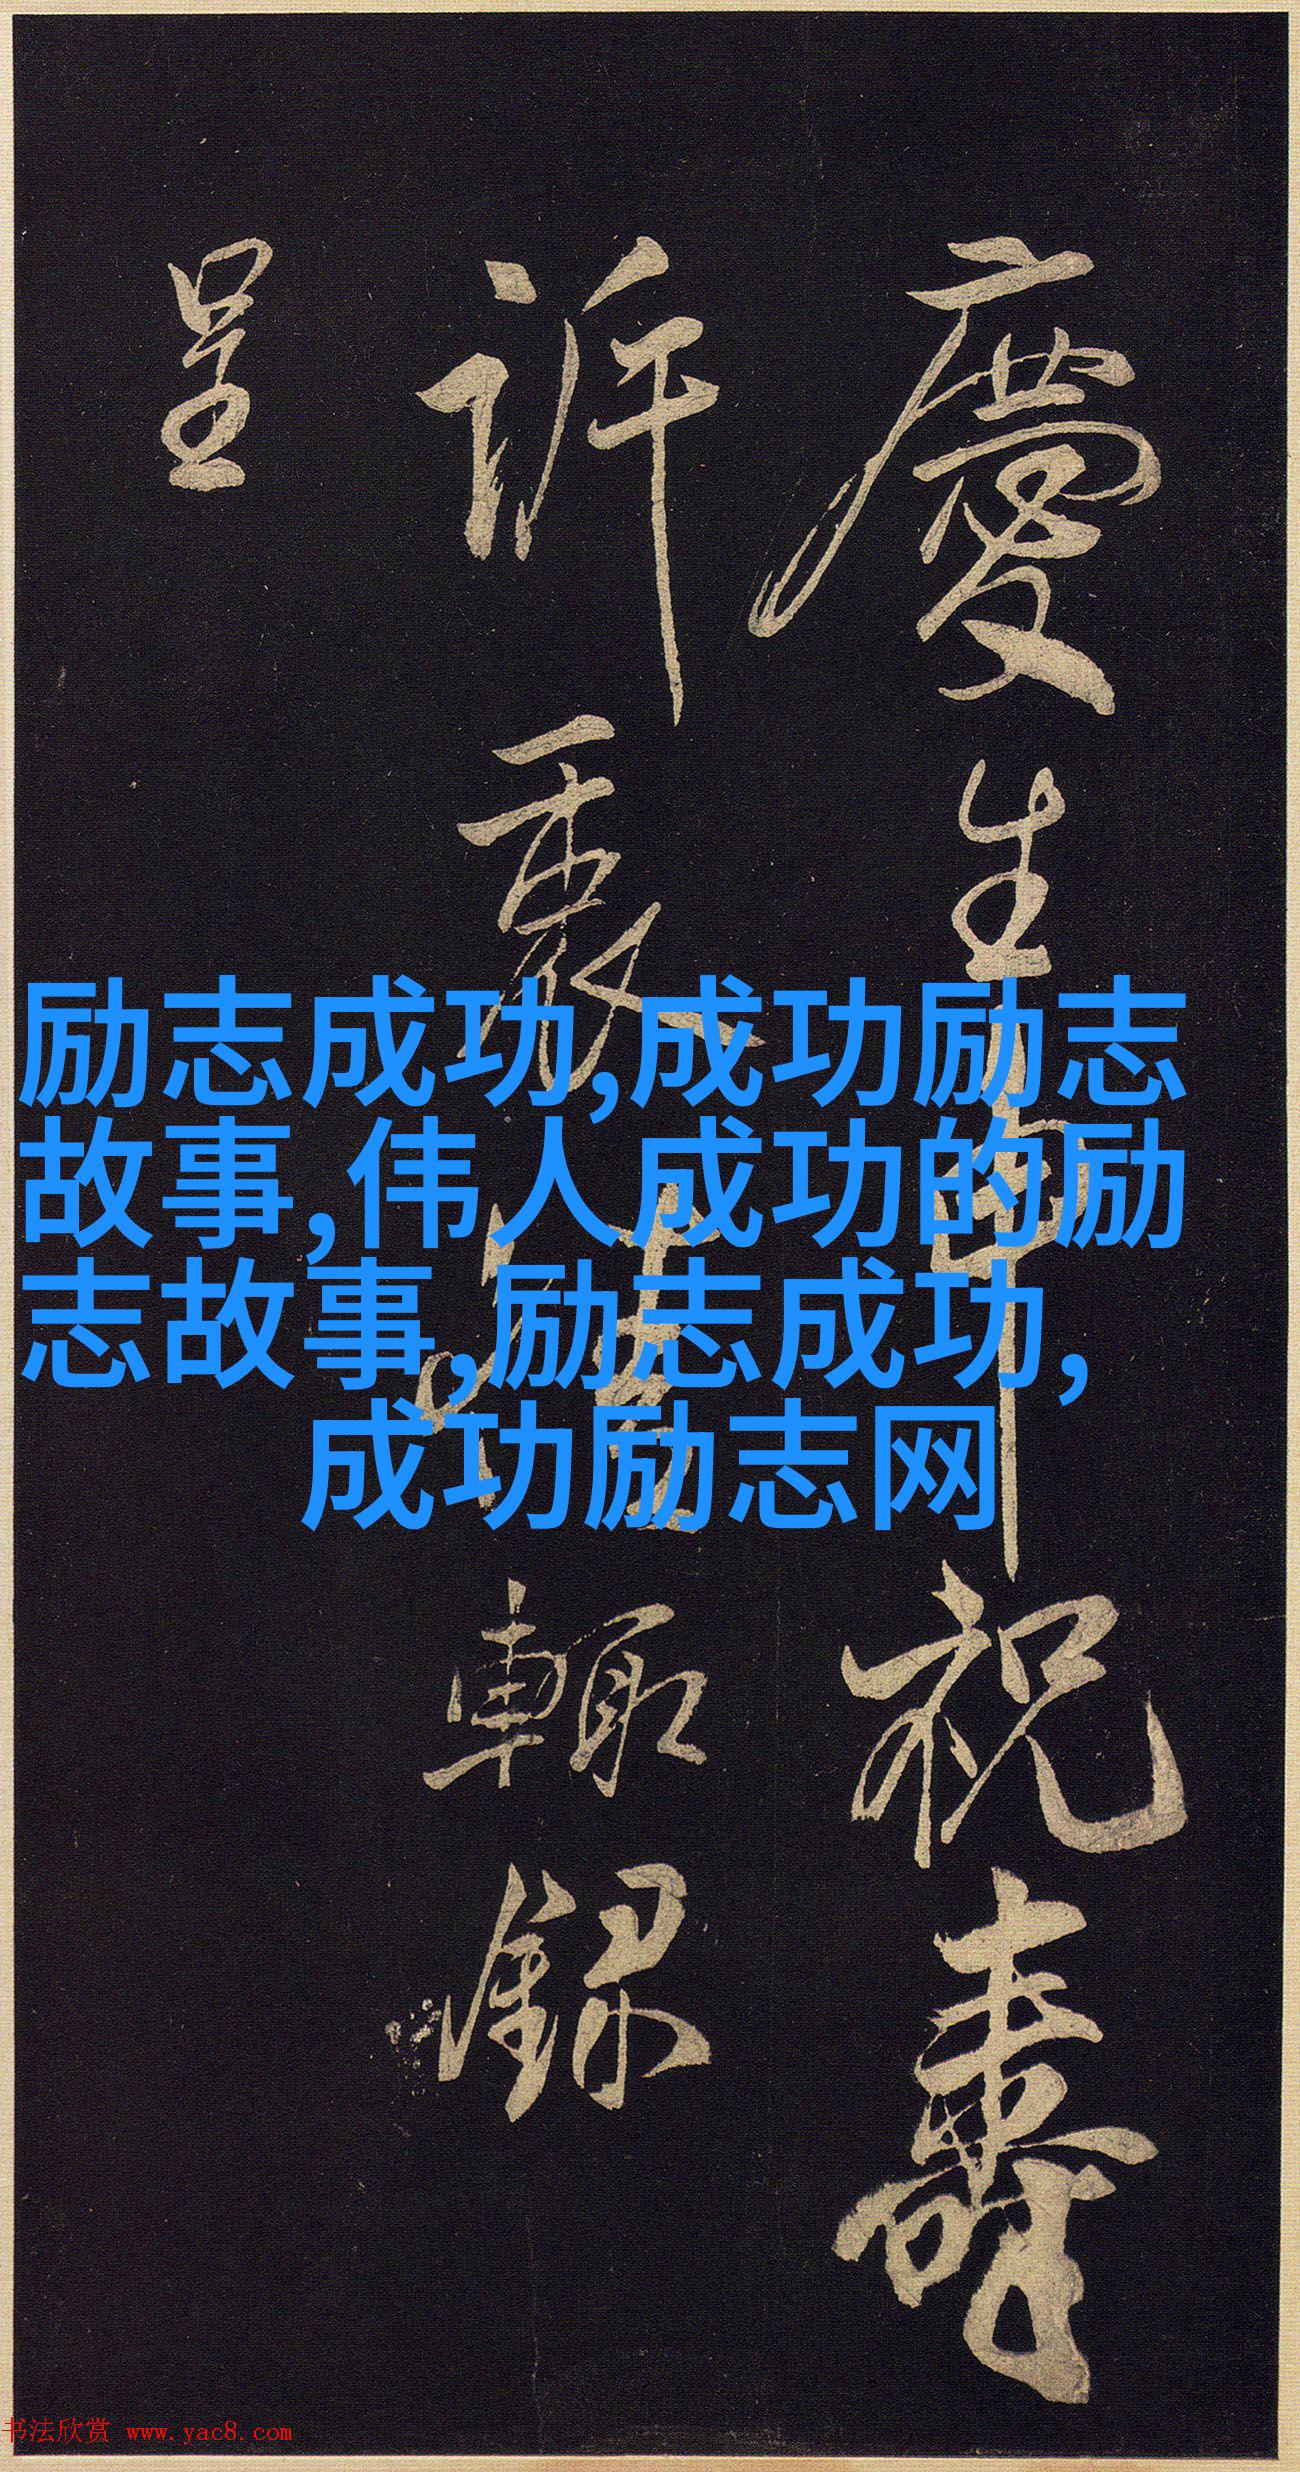 慶生申祝壽
訴衷情輒録
呈
励志成功,成功励志
故事,伟人成功的励
志故事,励志成功,
成功励志网
书法欣赏 www.yac8.com